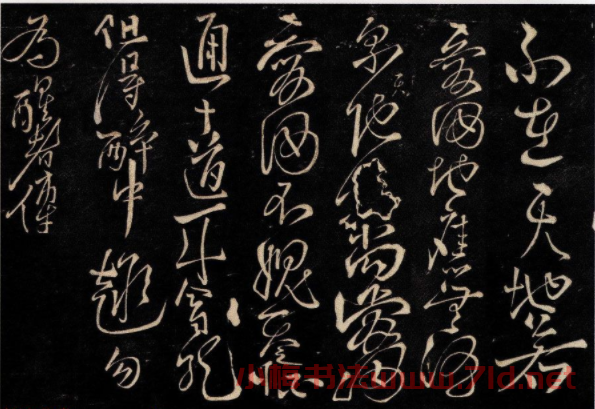 不在天地若
愛酒地應無酒
泉天地既愛酒
愛酒不愧
通大道一斗合自然
但得醉中趣勿
為醒者傳
小楷书法www.71d.net